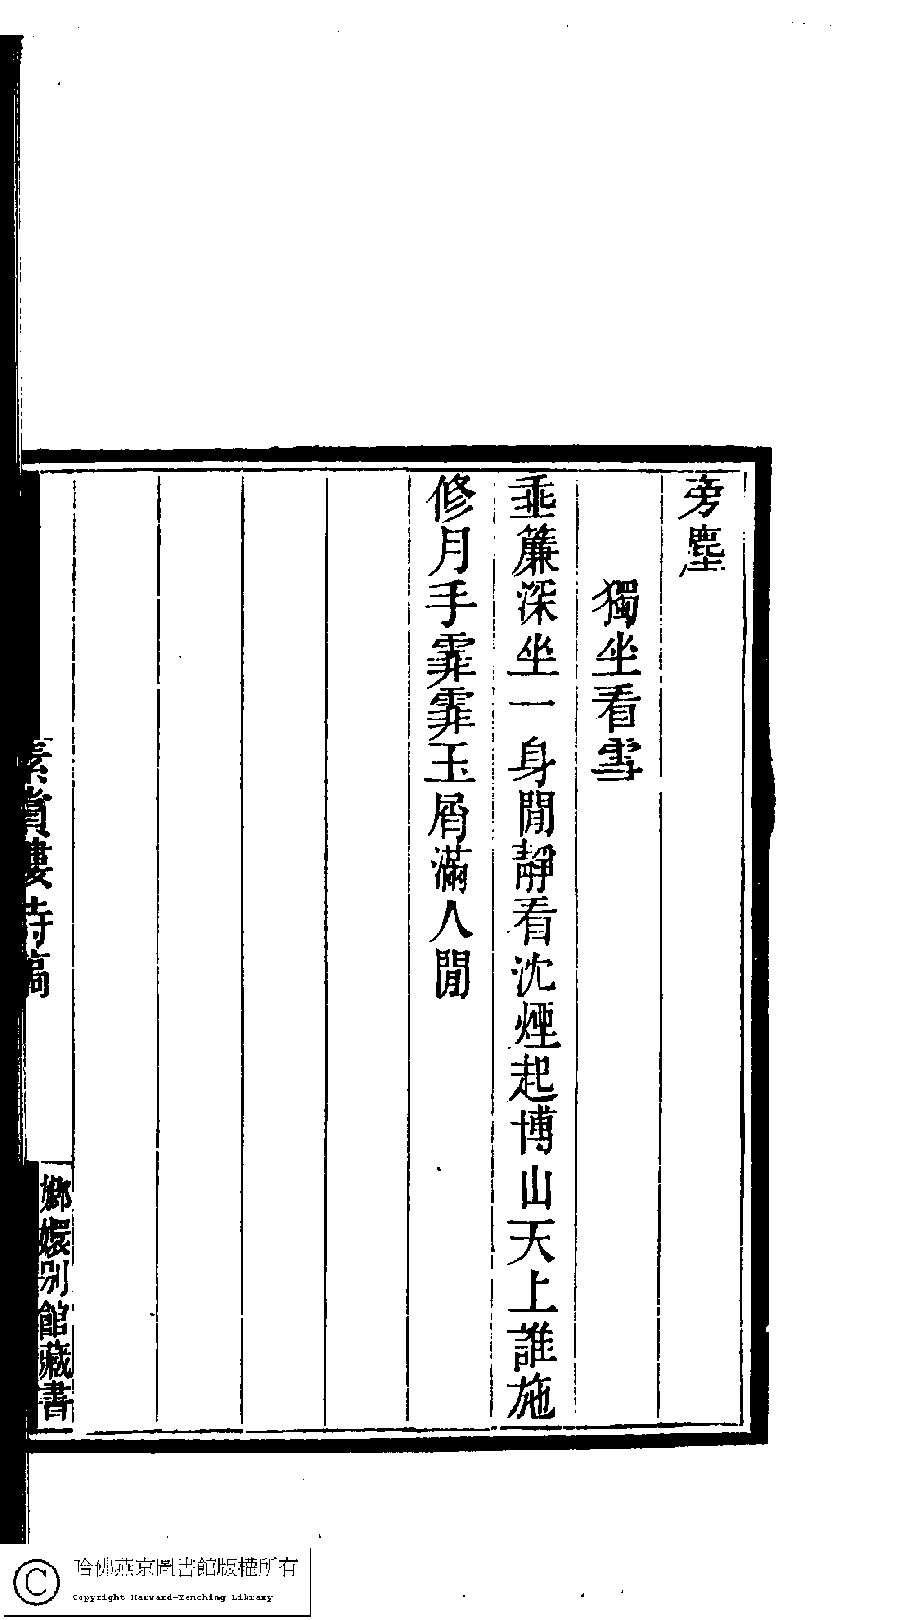 旁塵
獨坐看雪
垂簾深坐一身閒靜看沈煙起博山天上誰施
修月手霏霏玉屑滿人閒
素賞樓詩稿
嫏嬛別館藏書
哈佛燕京圖書館版權所有
Copyright Harvard-Yenching Library